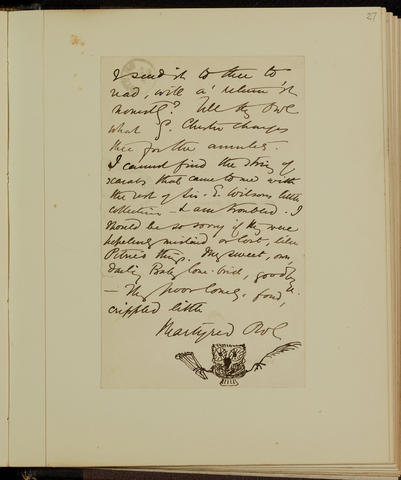 27
I send it to thee to
read, will a' return it
honestly? Tell thy Owl
what G. Chester charges
thee for the amulets.
I cannot find the string of
scarabs that came to me with
the rest of Sir E. Wilson's little
collection - I am troubled. I
should be so sorry if they were
hopelessly mislaid or lost, like
Petrie's things. My sweet, own,
darling Baby love-bird, goodbye.
— Thy poor lonely, fond,
crippled little
Martyred Owl